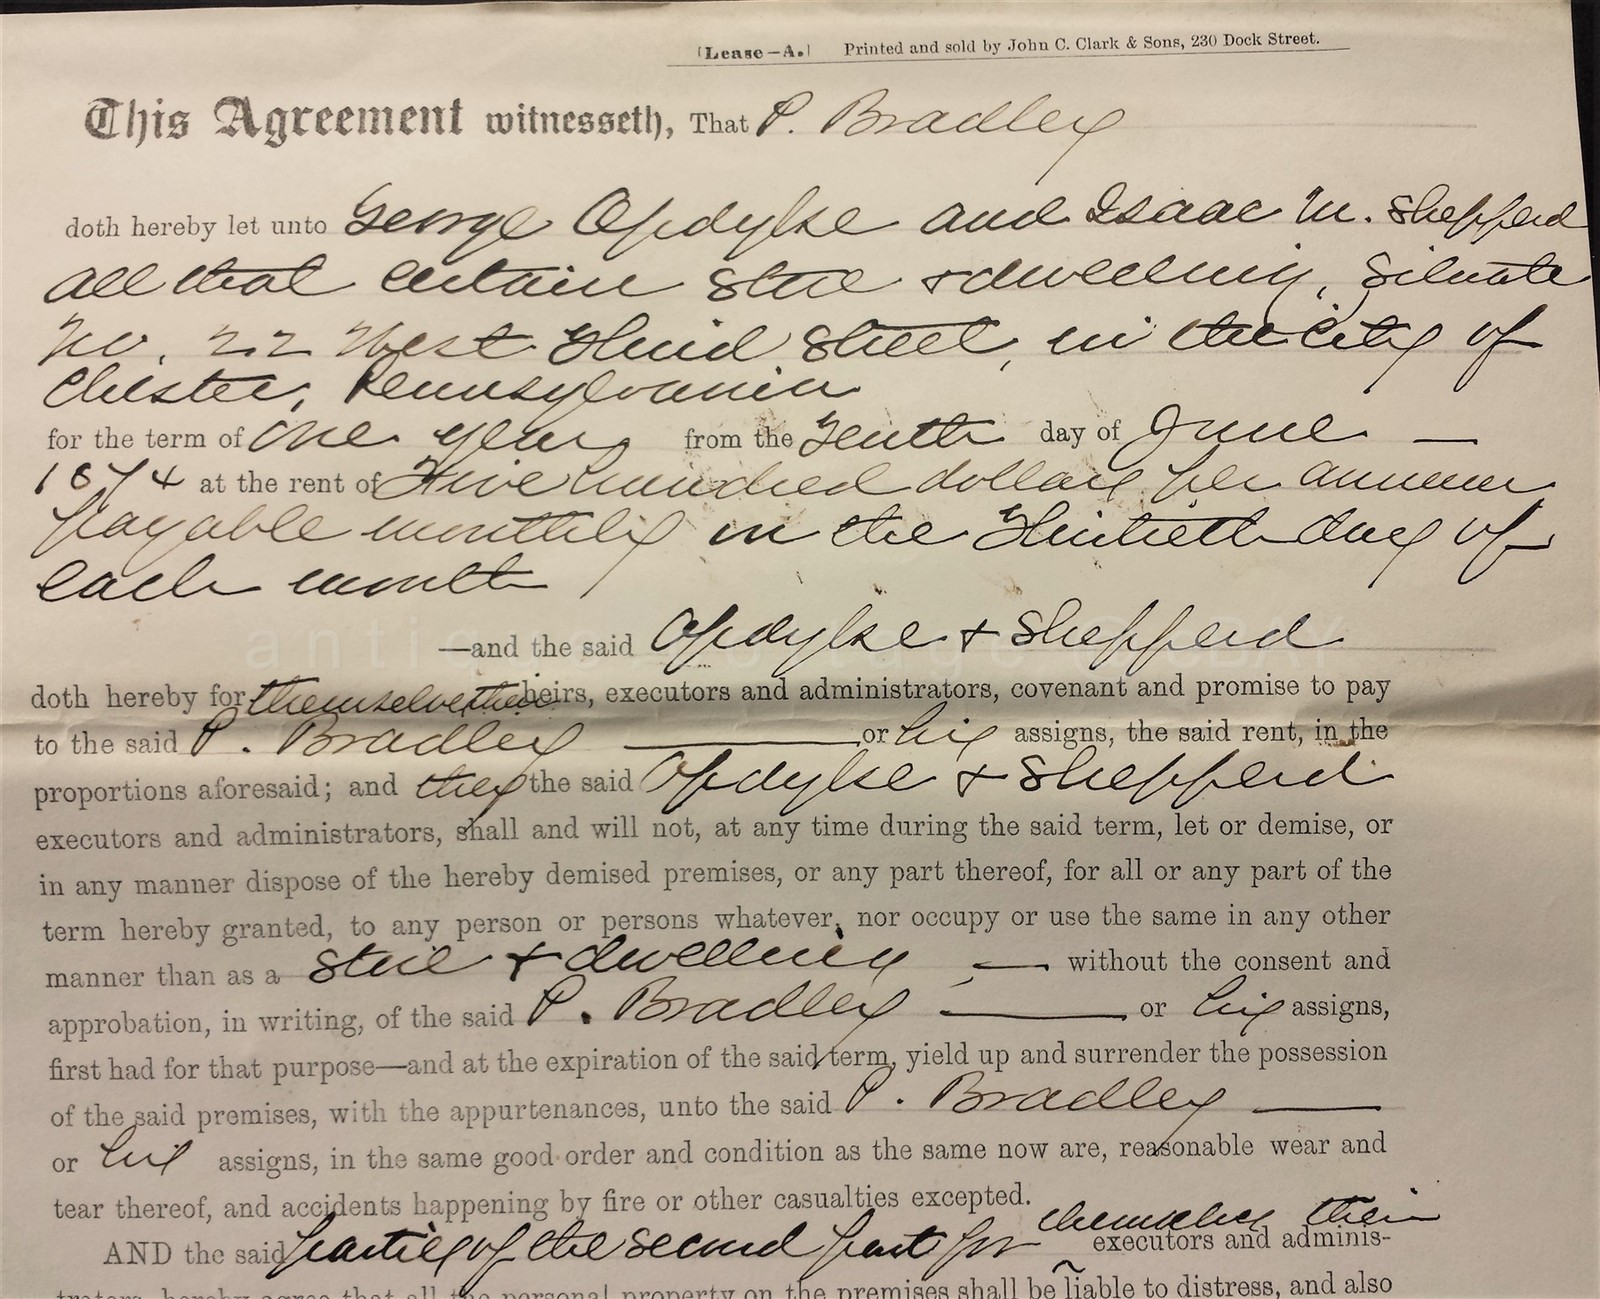 [Lease—A.] Printed and sold by John C. Clark & Sons, 230 Dock Street.
This Agreement witnesseth, That P. Bradley
doth hereby let unto George Opdyke and Isaac M. Shepperd
all that certain store & dwelling, situate
No. 22 West Third Street, in the City of
Chester, Pennsylvania
for the term of one year from the Tenth day of June —
1874 at the rent of Five hundred dollars per annum
payable monthly on the Thirtieth day of
each month
—and the said Opdyke & Shepperd
doth hereby for themselves their heirs, executors and administrators, covenant and promise to pay
to the said P. Bradley or his assigns, the said rent, in the
proportions aforesaid; and they the said Opdyke & Shepperd
executors and administrators, shall and will not, at any time during the said term, let or demise, or
in any manner dispose of the hereby demised premises, or any part thereof, for all or any part of the
term hereby granted, to any person or persons whatever, nor occupy or use the same in any other
manner than as a store & dwelling — without the consent and
approbation, in writing, of the said P. Bradley — or his assigns,
first had for that purpose—and at the expiration of the said term, yield up and surrender the possession
of the said premises, with the appurtenances, unto the said P. Bradley —
or his assigns, in the same good order and condition as the same now are, reasonable wear and
tear thereof, and accidents happening by fire or other casualties excepted.
themselves their
AND the said parties of the second part for executors and adminis-
trators, hereby agree that all the personal property on the premises shall be liable to distress, and also